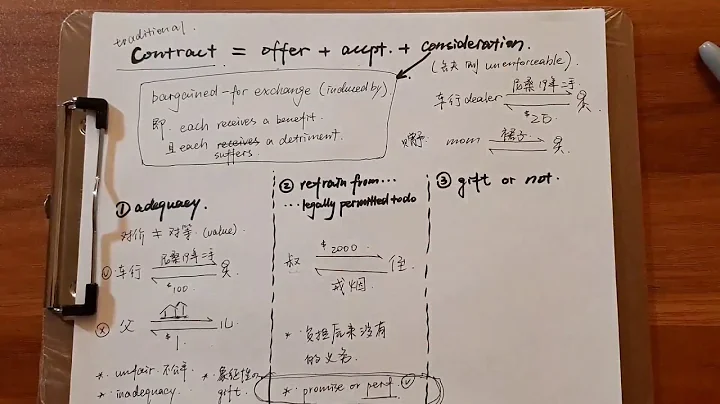 traditional.
Contract = offer + accpt. + consideration.
(否则 unenforceable)
bargained-for exchange (induced by)
即. each receives a benefit.
且 each receives suffers a detriment.
车行 dealer 尼桑19年二手 吴
$2万
赠予 mom 裙子 吴
① adequacy.
对价 ≠ 对等. (value)
车行 尼桑19年二手 吴
$100
父 儿
$1.
* unfair 不公平
* inadequacy
* 象征性の
gift.
② refrain from...
...legally permitted to do
叔 $2000 侄
戒烟
* 负担原来没有
的义务.
* promise or perf.
③ gift or not.